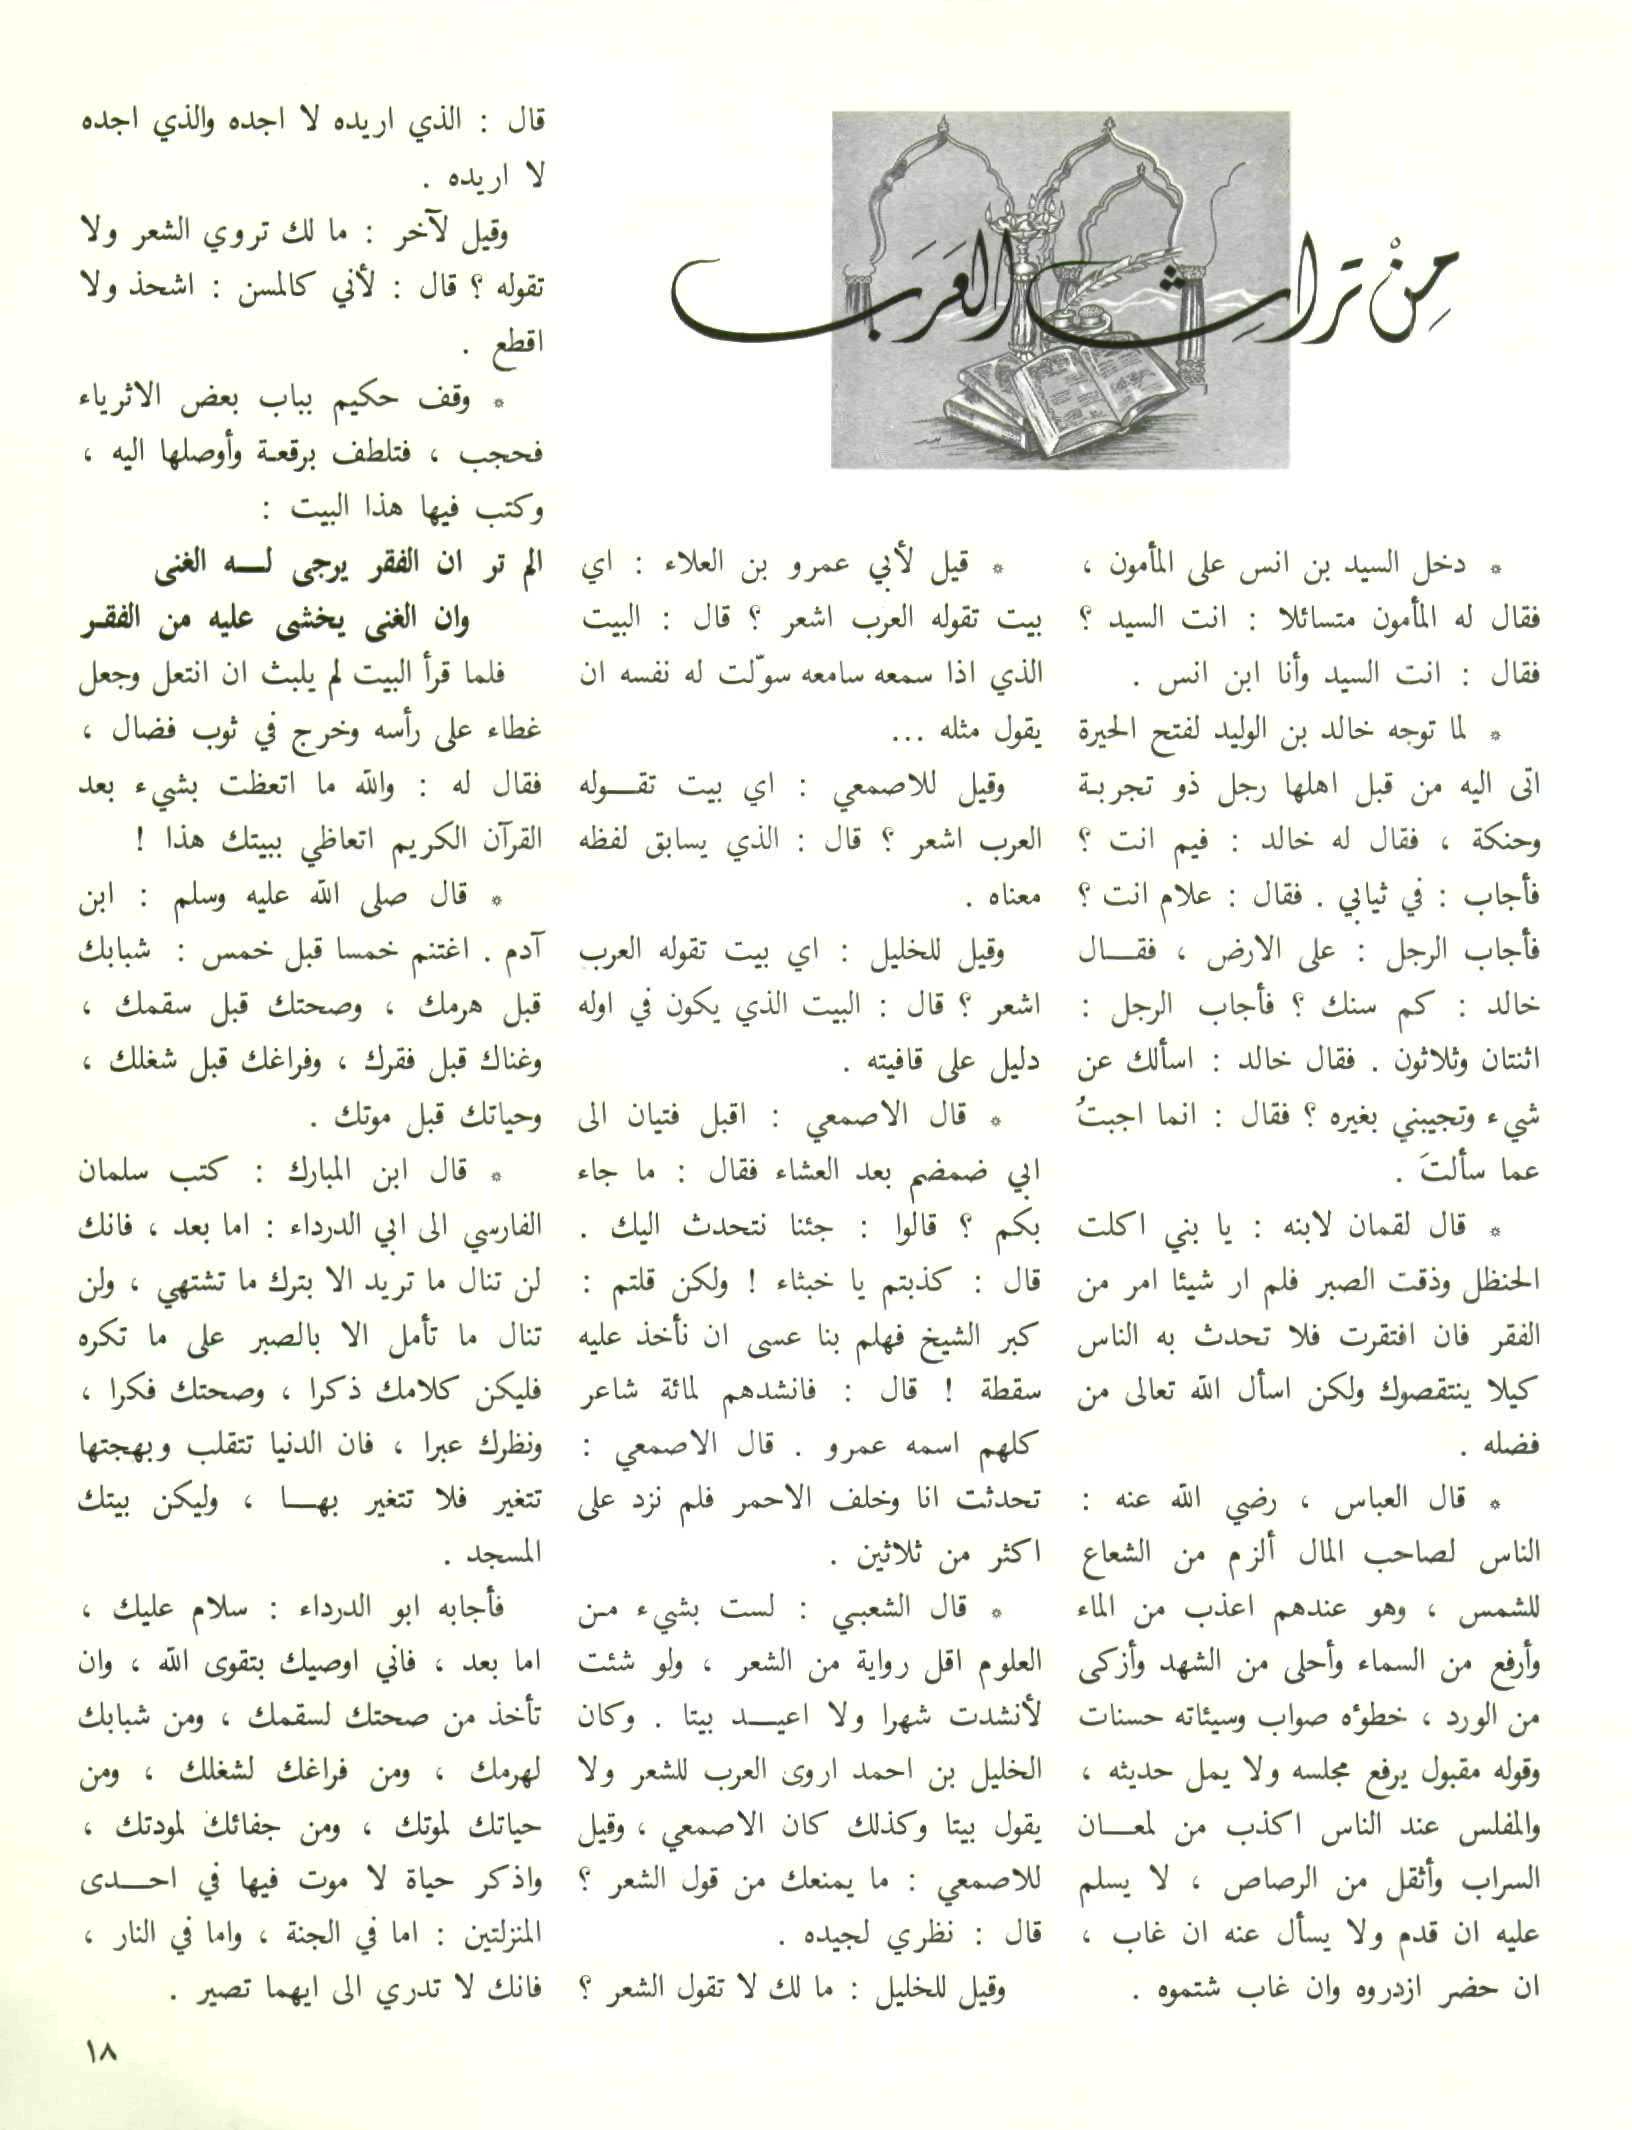 مِنْ تراثِ العَرَب
* دخل السيد بن انس على المأمون ،
فقال له المأمون متسائلا : انت السيد ؟
فقال : انت السيد وأنا ابن انس .
* لما توجه خالد بن الوليد لفتح الحيرة
اتى اليه من قبل اهلها رجل ذو تجربة
وحنكة ، فقال له خالد : فيم انت ؟
فأجاب : في ثيابي . فقال : علام انت ؟
فأجاب الرجل : على الارض ، فقـــال
خالد : كم سنك ؟ فأجاب الرجل :
اثنتان وثلاثون . فقال خالد : اسألك عن
شيء وتجيبني بغيره ؟ فقال : انما اجبتُ
عما سألتَ .
* قال لقمان لابنه : يا بني اكلت
الحنظل وذقت الصبر فلم ار شيئا امر من
الفقر فان افتقرت فلا تحدث به الناس
كيلا ينتقصوك ولكن اسأل الله تعالى من
فضله .
* قال العباس ، رضي الله عنه :
الناس لصاحب المال ألزم من الشعاع
للشمس ، وهو عندهم اعذب من الماء
وأرفع من السماء وأحلى من الشهد وأزكى
من الورد ، خطؤه صواب وسيئاته حسنات
وقوله مقبول يرفع مجلسه ولا يمل حديثه ،
والمفلس عند الناس اكذب من لمعـــان
السراب وأثقل من الرصاص ، لا يسلم
عليه ان قدم ولا يسأل عنه ان غاب ،
ان حضر ازدروه وان غاب شتموه .
* قيل لأبي عمرو بن العلاء : اي
بيت تقوله العرب اشعر ؟ قال : البيت
الذي اذا سمعه سامعه سوّلت له نفسه ان
يقول مثله ...
وقيل للاصمعي : اي بيت تقـــوله
العرب اشعر ؟ قال : الذي يسابق لفظه
معناه .
وقيل للخليل : اي بيت تقوله العرب
اشعر ؟ قال : البيت الذي يكون في اوله
دليل على قافيته .
* قال الاصمعي : اقبل فتيان الى
ابي ضمضم بعد العشاء فقال : ما جاء
بكم ؟ قالوا : جئنا نتحدث اليك .
قال : كذبتم يا خبثاء ! ولكن قلتم :
كبر الشيخ فهلم بنا عسى ان نأخذ عليه
سقطة ! قال : فانشدهم لمائة شاعر
كلهم اسمه عمرو . قال الاصمعي :
تحدثت انا وخلف الاحمر فلم نزد على
اكثر من ثلاثين .
* قال الشعبي : لست بشيء من
العلوم اقل رواية من الشعر ، ولو شئت
لأنشدت شهرا ولا اعيـــد بيتا . وكان
الخليل بن احمد اروى العرب للشعر ولا
يقول بيتا وكذلك كان الاصمعي ، وقيل
للاصمعي : ما يمنعك من قول الشعر ؟
قال : نظري لجيده .
وقيل للخليل : ما لك لا تقول الشعر ؟
قال : الذي اريده لا اجده والذي اجده
لا اريده .
وقيل لآخر : ما لك تروي الشعر ولا
تقوله ؟ قال : لأني كالمسن : اشحذ ولا
اقطع .
* وقف حكيم بباب بعض الاثرياء
فحجب ، فتلطف برقعة وأوصلها اليه ،
وكتب فيها هذا البيت :
الم تر ان الفقر يرجى لـــه الغنى
وان الغنى يخشى عليه من الفقر
فلما قرأ البيت لم يلبث ان انتعل وجعل
غطاء على رأسه وخرج في ثوب فضال ،
فقال له : والله ما اتعظت بشيء بعد
القرآن الكريم اتعاظي ببيتك هذا !
* قال صلى الله عليه وسلم : ابن
آدم . اغتنم خمسا قبل خمس : شبابك
قبل هرمك ، وصحتك قبل سقمك ،
وغناك قبل فقرك ، وفراغك قبل شغلك ،
وحياتك قبل موتك .
* قال ابن المبارك : كتب سلمان
الفارسي الى ابي الدرداء : اما بعد ، فانك
لن تنال ما تريد الا بترك ما تشتهي ، ولن
تنال ما تأمل الا بالصبر على ما تكره
فليكن كلامك ذكرا ، وصحتك فكرا ،
ونظرك عبرا ، فان الدنيا تتقلب وبهجتها
تتغير فلا تتغير بهـــا ، وليكن بيتك
المسجد .
فأجابه ابو الدرداء : سلام عليك ،
اما بعد ، فاني اوصيك بتقوى الله ، وان
تأخذ من صحتك لسقمك ، ومن شبابك
لهرمك ، ومن فراغك لشغلك ، ومن
حياتك لموتك ، ومن جفائك لمودتك ،
واذكر حياة لا موت فيها في احـــدى
المنزلتين : اما في الجنة ، واما في النار ،
فانك لا تدري الى ايهما تصير .
١٨